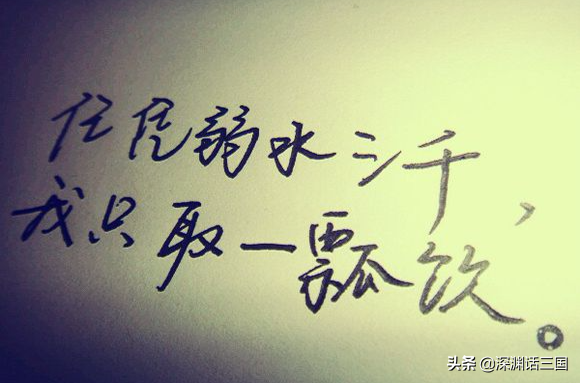 任凭弱水三千，
我只取一瓢饮。
头条 @深渊话三国